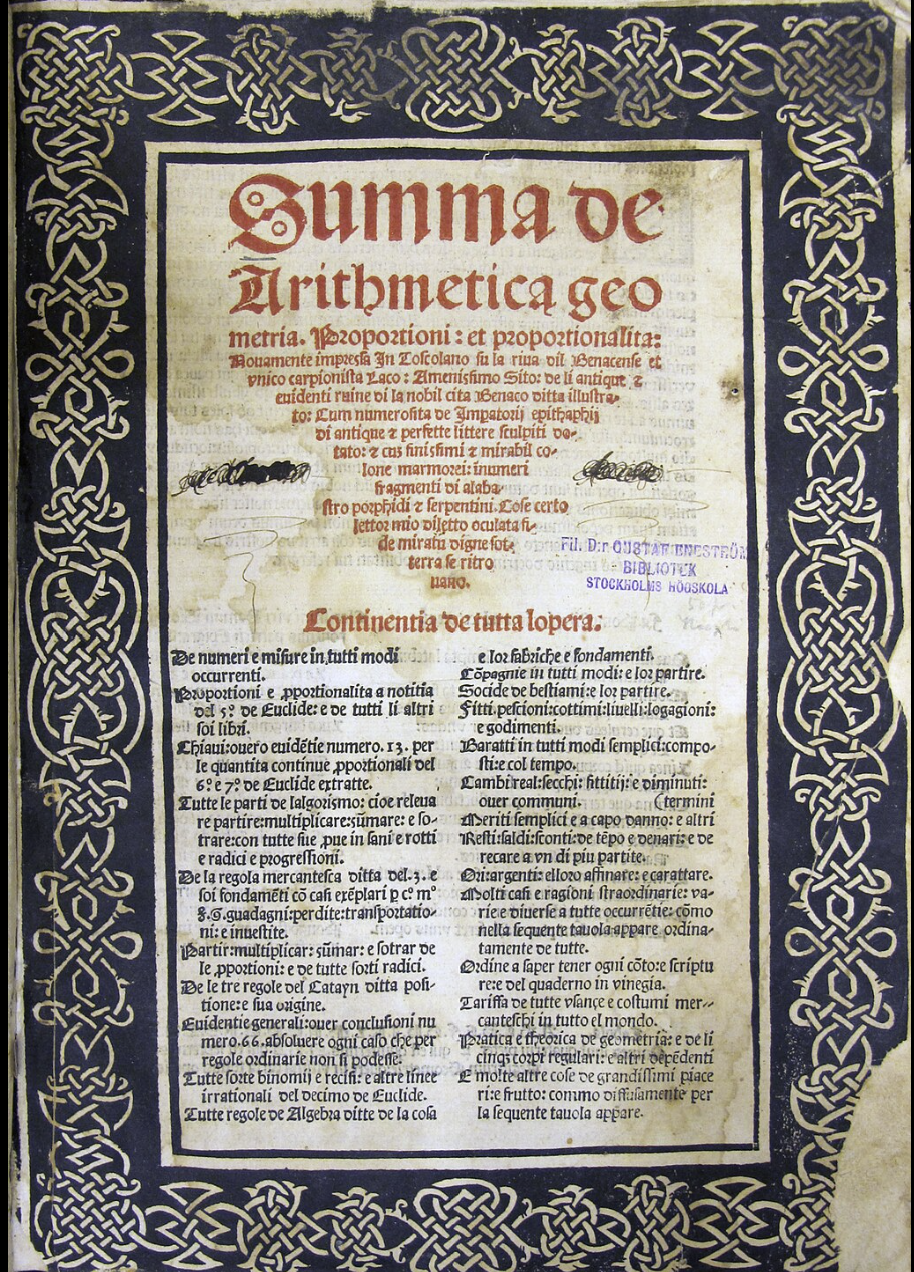 Summa de
Arithmetica geo
metria. Proportioni: et proportionalita:
Nouamente impressa In Toscolano su la riua dil Benacense et
vnico carpionista Laco: Amenissimo Sito: de li antique ⁊
euidenti ruine di la nobil cita Benaco ditta illustra-
to: Cum numerosita de Impatorij epithaphij
di antique ⁊ perfette littere sculpiti do-
tato: ⁊ cus finissimi ⁊ mirabil co-
lone marmorei: inumeri
fragmenti di alaba-
stro porphidi ⁊ serpentini. Cose certo
lettor mio diletto oculata fi-
de miratu digne sot-
terra se ritro
uano.
Fil. D:r GUSTAF ENESTRÖM
BIBLIOTEK
STOCKHOLMS HÖGSKOLA
Continentia de tutta lopera:
De numeri e misure in tutti modi
occurrenti.
Proportioni e ꝓportionalita a notitia
del 5º de Euclide: e de tutti li altri
soi libri.
Chiaui: ouero euidẽtie numero. 13. per
le quantita continue ꝓportionali del
6º e 7º de Euclide extratte.
Tutte le parti de lalgorismo: cioe releua
re partire: multiplicare: sũmare: e so-
trare: con tutte sue ꝓue in sani e rotti
e radici e progressioni.
De la regola mercantesca ditta del .3. e
soi fondamẽti cõ casi exẽplari ꝑ cº mº
guadagni: perdite: transportatio-
ni: e inuestite.
Partir: multiplicar: sũmar: e sotrar de
le ꝓportioni: e de tutte sorti radici.
De le tre regole del Catayn ditta posi-
tione: e sua origine.
Euidentie generali: ouer conclusioni nu
mero .66. absoluere ogni caso che per
regole ordinarie non si podesse.
Tutte sorte binomij e recisi: e altre linee
irrationali del decimo de Euclide.
Tutte regole de Algebra ditte de la cosa
e lor fabriche e fondamenti.
Cõpagnie in tutti modi: e lor partire.
Socide de bestiami: e lor partire.
Fitti: pescioni: cottimi: liuelli: logagioni:
e godimenti.
Baratti in tutti modi semplici: compo-
sti: e col tempo.
Cambi real: secchi: fittitij: e diminuti:
ouer communi. (termini
Meriti semplici e a capo danno: e altri
Resti: saldi: sconti: de tẽpo e denari: e de
recare a vn di piu partite.
Ori: argenti: e lloro affinare: e carattare.
Molti casi e ragioni straordinarie: va-
rie e diuerse a tutte occurrẽtie: cõmo
nella sequente tauola appare ordina-
tamente de tutte.
Ordine a saper tener ogni cõto: e scriptu
re: e del quaderno in vinegia.
Tariffa de tutte vsançe e costumi mer-
canteschi in tutto el mondo.
Pratica e theorica de geometria: e de li
cinqꝫ corpi regulari: e altri dependenti
E molte altre cose de grandissimi piace
ri: e frutto: commo diffusamente per
la sequente tauola appare.